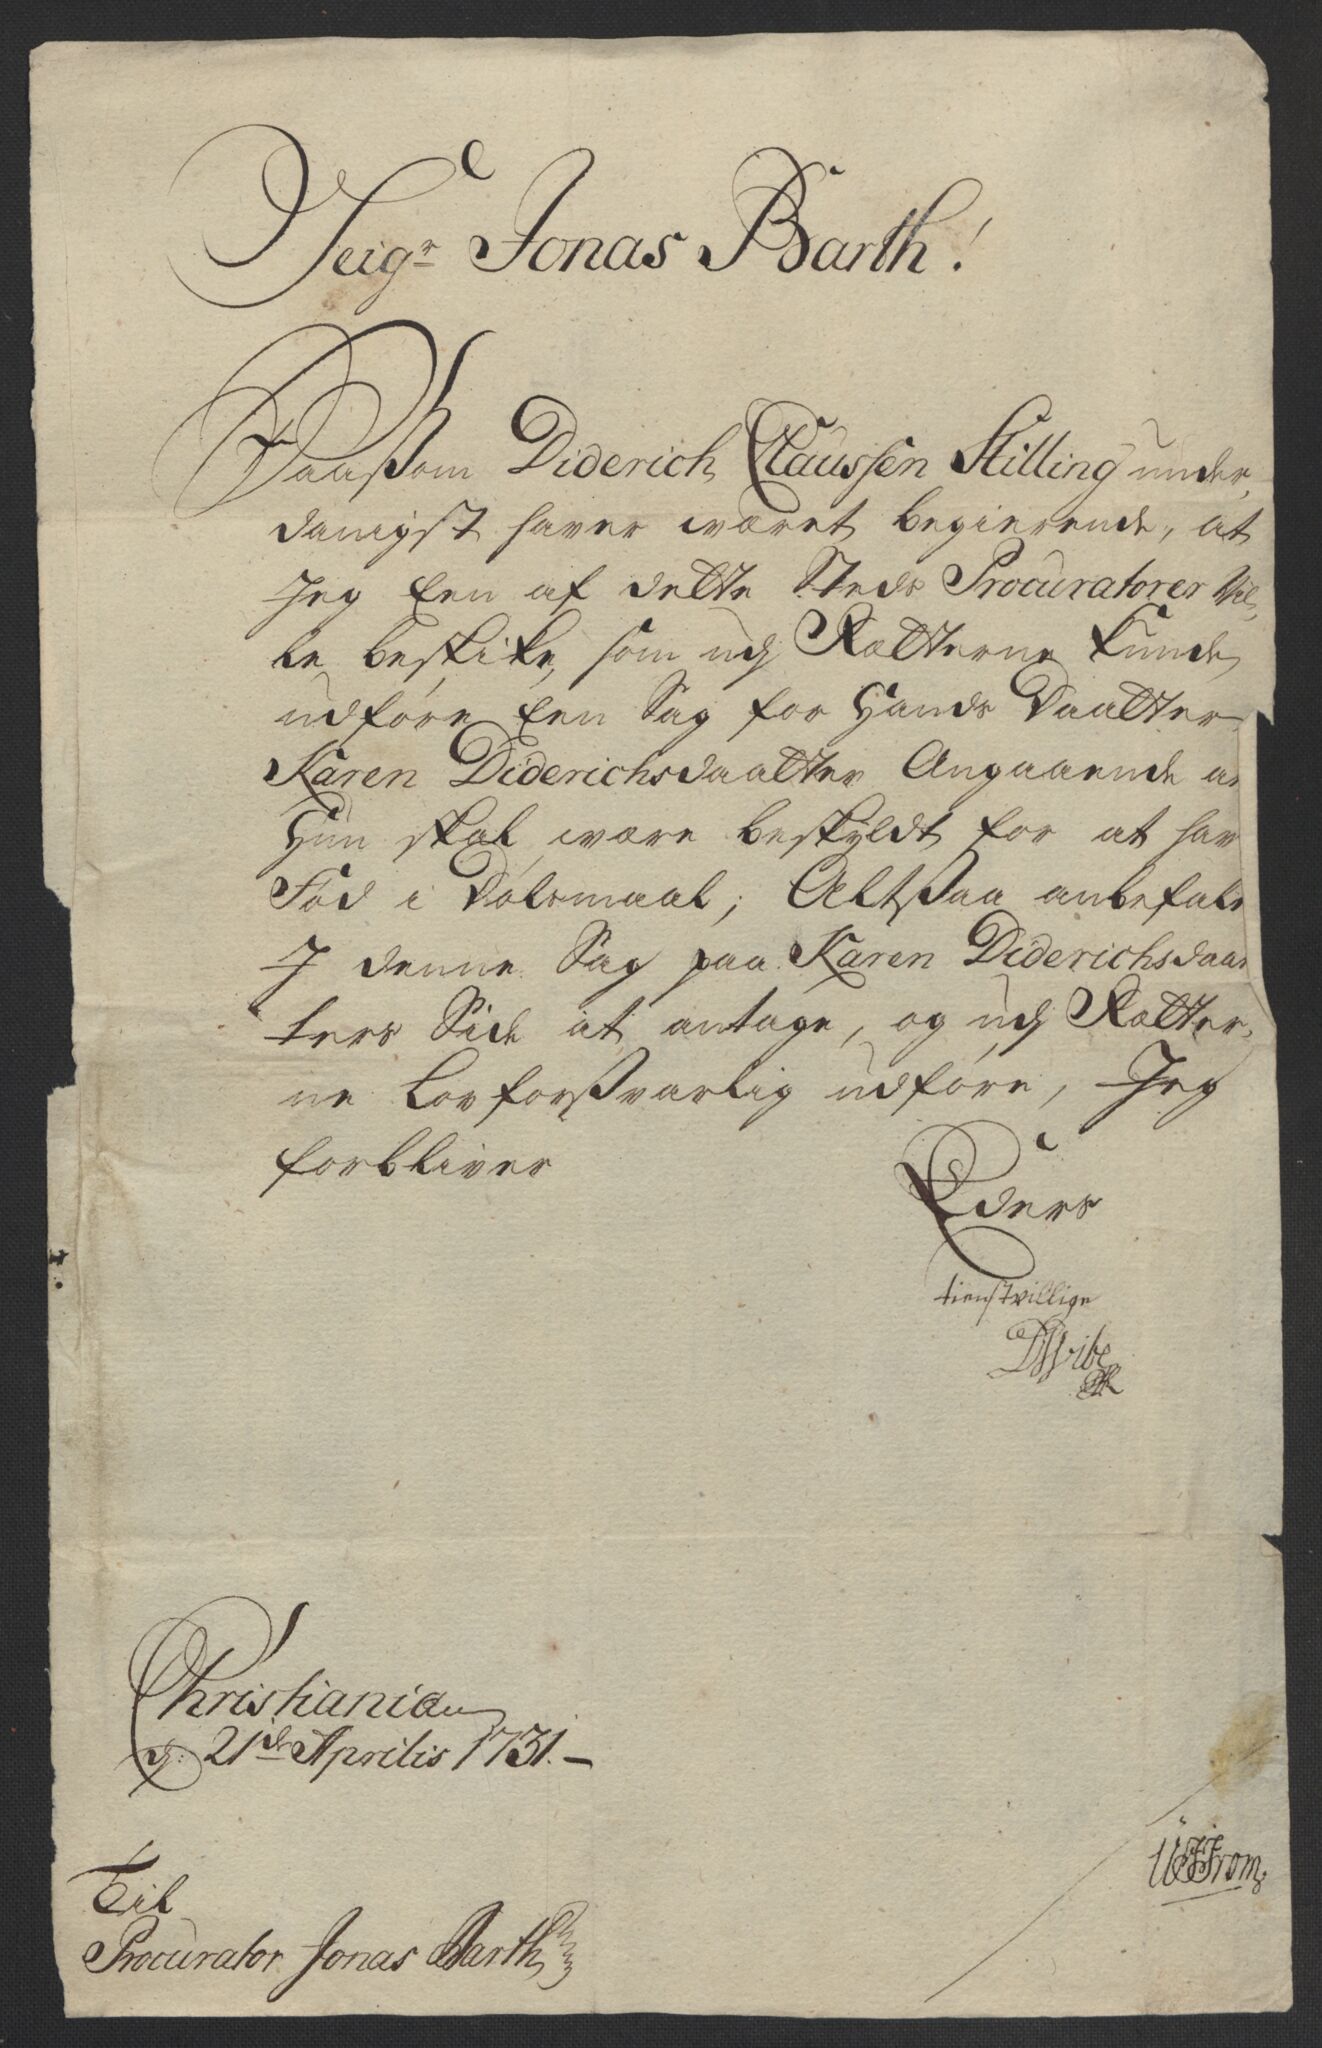 Seigr Jonas Barth!
Saasom Diderich Claussen Stilling under,
danigst haver wæret begierende, at
Jeg Een af dette Steds Procuratorer Vil,
le beskike, som udj Rætterne Kunde
udføre Een Sag for Hands Daatter
Karen Diderichsdaatter Angaaende a
Hun skal være beskyldt for at hav
Fød i Dølsmaal; Altsaa anbefale
J denne Sag paa Karen Diderichsdaat
ters Side at antage, og udj Rætter,
ne Lovforsvarlig udføre, Jeg
forbliver
Eders
tienstvillige
DWibe
Christiania
d: 21de Aprilis 1731.–
Til
Procurator Jonas Barth